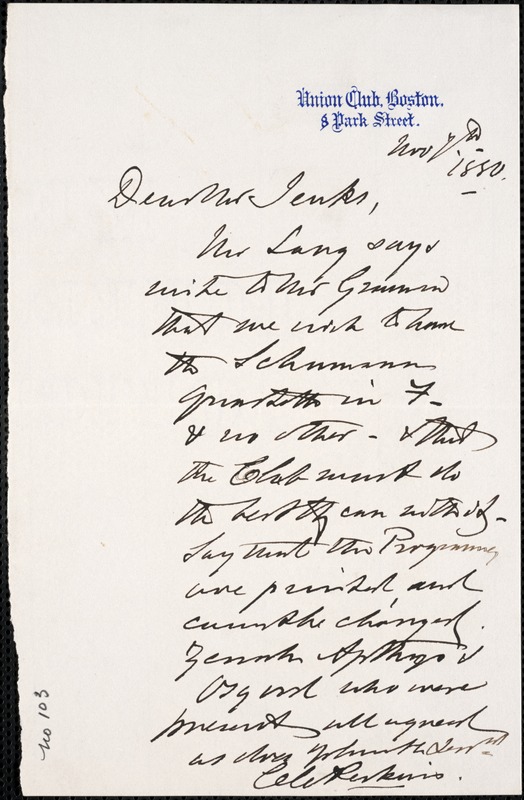 Union Club, Boston.
8 Park Street.
Nov 7th
1880.
Dear Mr Jenks,
Mr Lang says
write to Mr Gramm
that we wish to have
the Schumann
quartette in F-
& no other - & that
the Club must do
the best they can with it -
Say that the Programmes
are printed and
cannot be changed.
Apthorp &
Osgood who were
present all agreed
as does
C C Perkins.
no 103